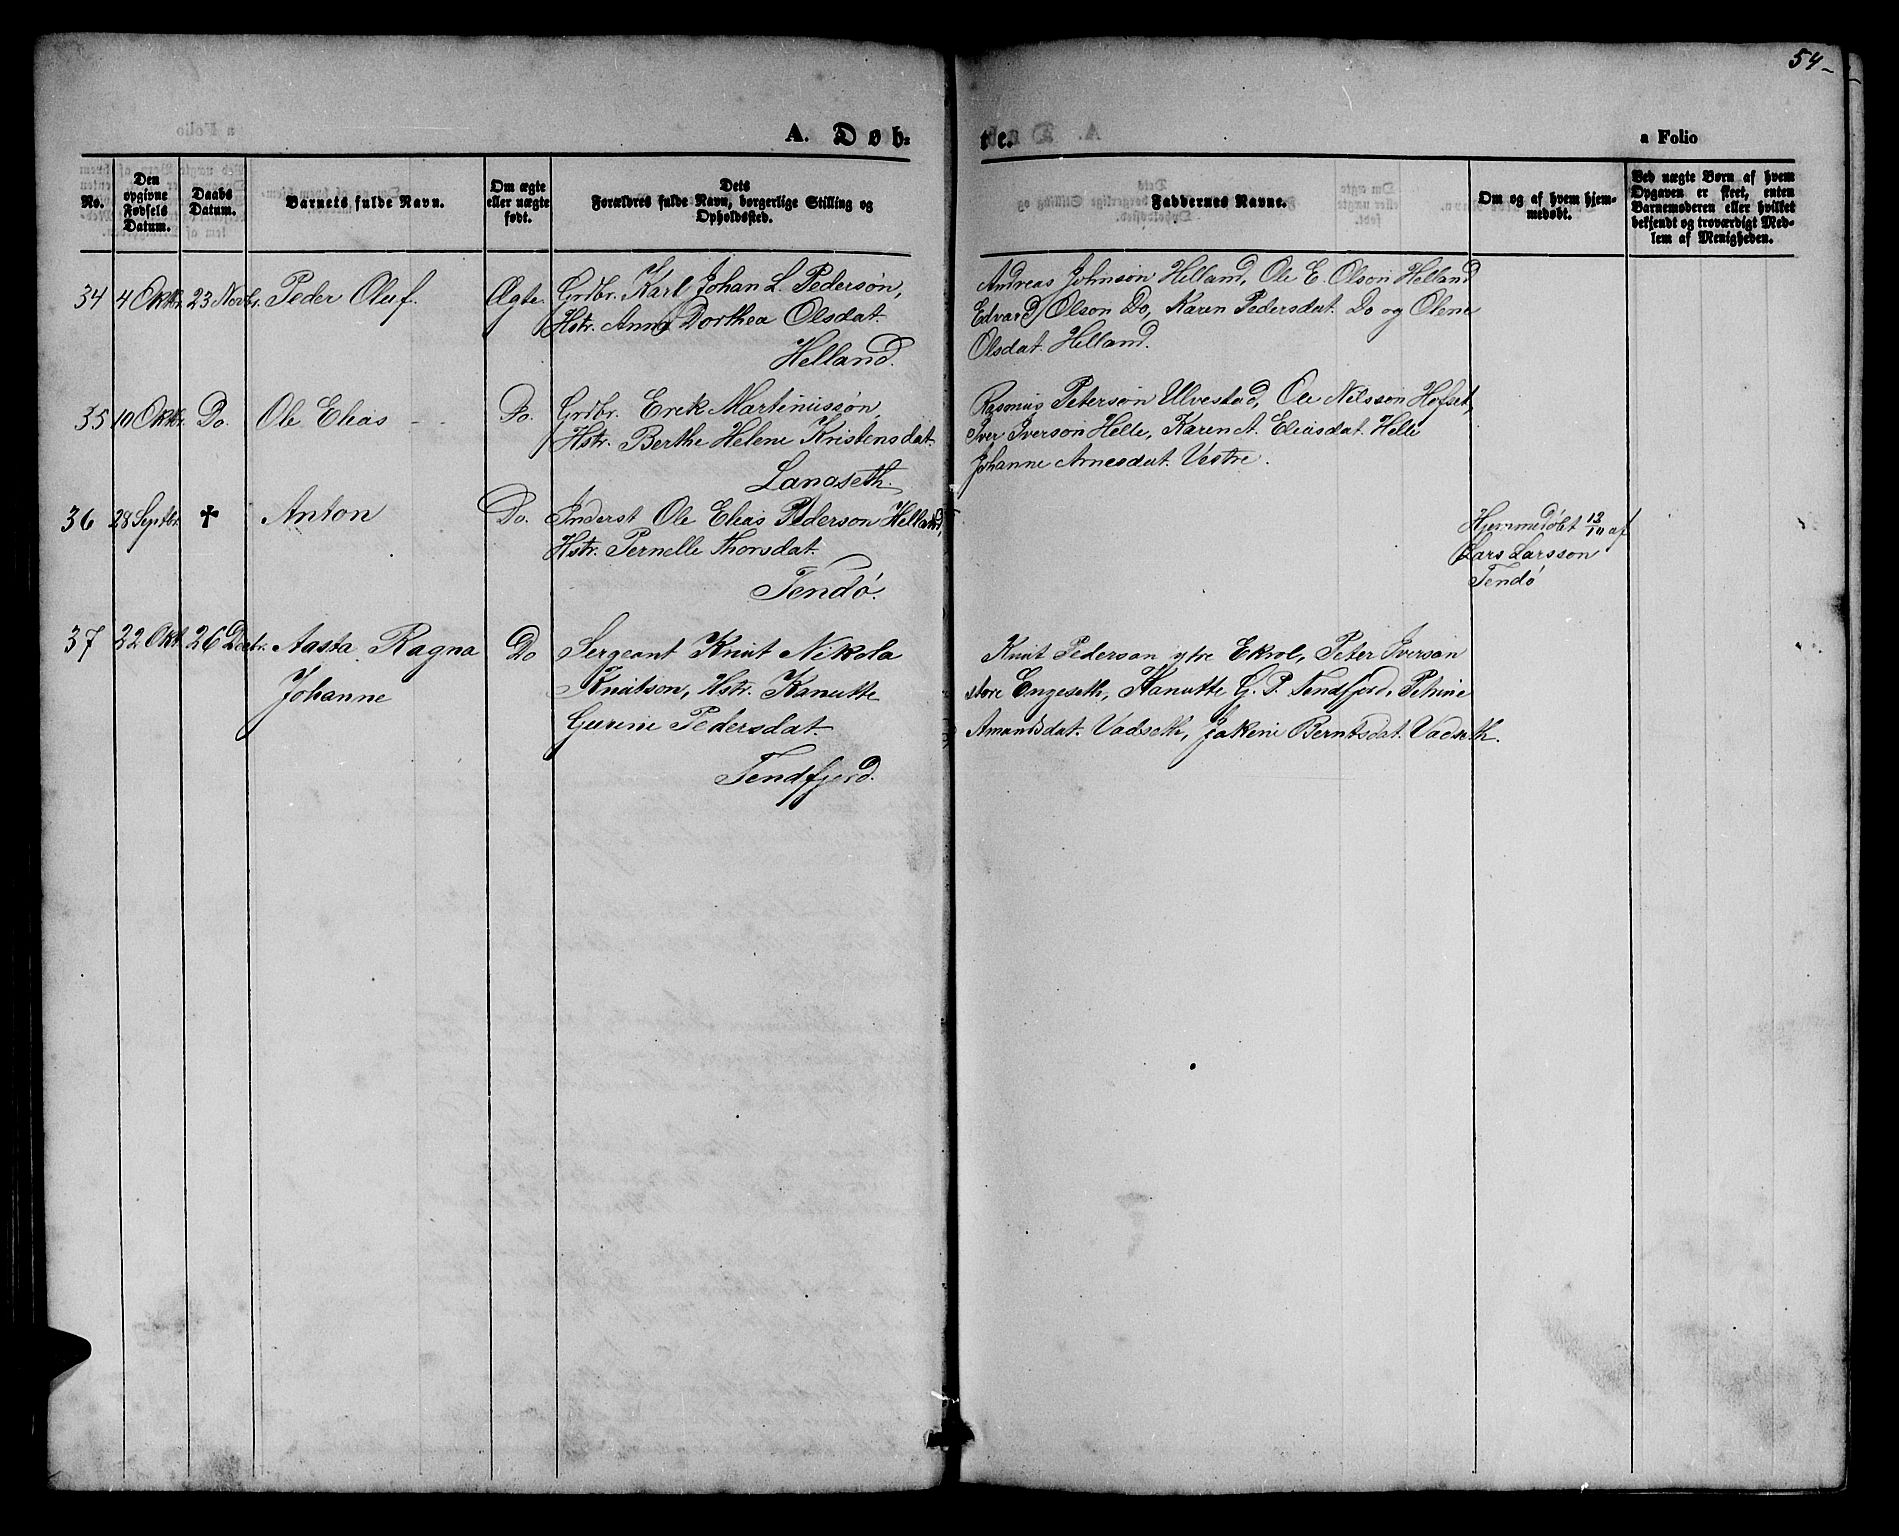 54
A. Døb=
te.
a Folio
No.
Den opgivne Fødsels Datum.
Daabs Datum.
Barnets fulde Navn.
Om ægte eller uægte født.
Dets Forældres fulde Navn, borgerlige Stilling og Opholdssted.
Faddernes Navne.
Om og af hvem hjemmedøbt.
Ved uægte Børn af hvem Opgaven er skeet, enten Barnemoderen eller hvilket bekjendt og troværdigt Medlem af Menigheden.
34 4 Oktbr. 23 Novbr. Peder Oluf. Ægte. Grdbr. Karl Johan L. Pedersøn,
Hstr. Anne Dorthea Olsdat.
Helland.
Andreas Johnsøn Helland, Ole E. Olson Helland
Edvard Olson Do, Karen Pedersdat. Do og Olene
Olsdat. Helland.
35 10 Oktbr. Do. Ole Elias Do. Grdbr. Erek Martinussøn,
Hstr. Berthe Helene Kristensdat.
Langseth.
Rasmus Petersøn Ulvestad, Ole Nilsson Hofset,
Iver Iverson Helle, Karen A. Eliasdat. Helle
Johanne Arnesdat. Vestre.
36 28 Septbr. † Anton Do. Inderst Ole Elias Pederson Helland,
Hstr. Pernelle Thorsdat.
Tendø.
Hjemmedøbt 12/10 af
Lars Larsson
Tendø
37 22 Okt. 26 Decbr. Aasta Ragna
Johanne
Do Sergeant Knut Nikola
Knutson, Hstr. Kanutte
Gurine Pedersdat.
Tendfjord.
Knut Pederson ytre Ekrol, Peter Iverson
store Engeseth, Hanutte G. P. Tendfjord, Petrine
Amandsdat. Vadseth, Jakine Berntsdat. Vadseth.